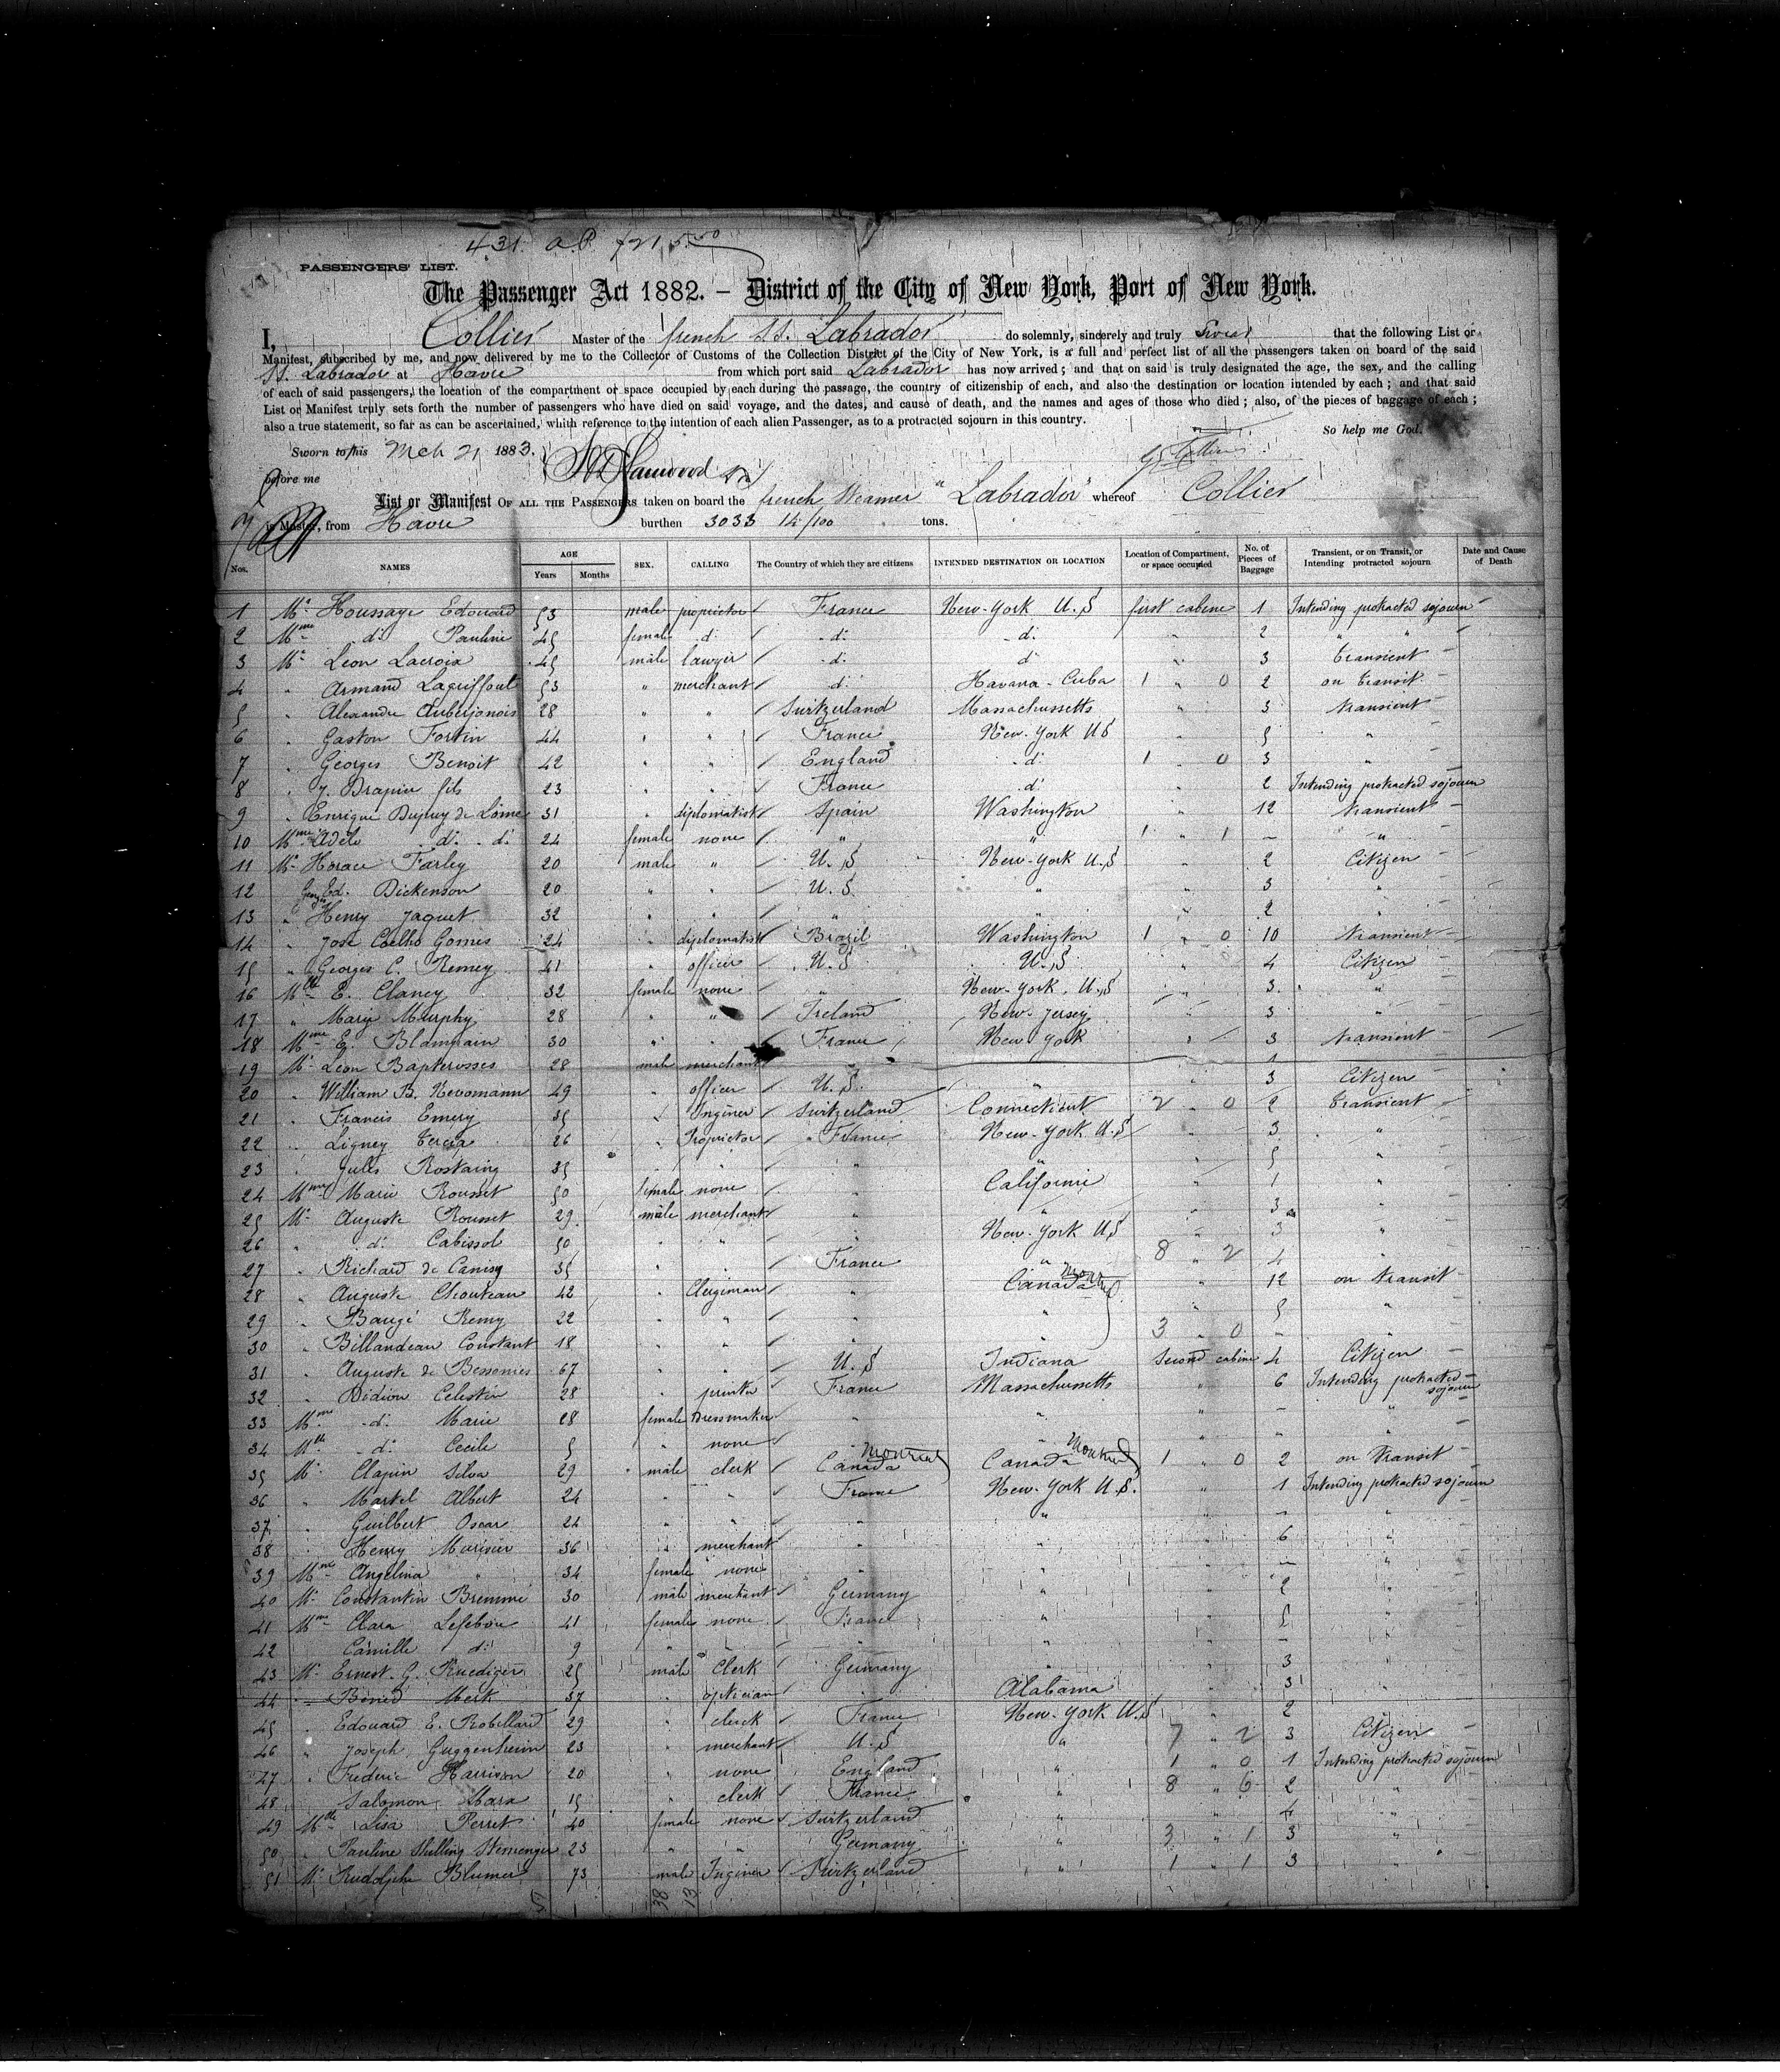 431.
PASSENGERS' LIST.
The Passenger Act 1882. – District of the City of New York, Port of New York.
I, Collier Master of the french SS. Labrador do solemnly, sincerely and truly Swear that the following List or
Manifest, subscribed by me, and now delivered by me to the Collector of Customs of the Collection District of the City of New York, is a full and perfect list of all the passengers taken on board of the said
SS. Labrador at Havre from which port said Labrador has now arrived; and that on said is truly designated the age, the sex, and the calling
of each of said passengers, the location of the compartment or space occupied by each during the passage, the country of citizenship of each, and also the destination or location intended by each; and that said
List or Manifest truly sets forth the number of passengers who have died on said voyage, and the dates, and cause of death, and the names and ages of those who died; also, of the pieces of baggage of each;
also a true statement, so far as can be ascertained, which reference to the intention of each alien Passenger, as to a protracted sojourn in this country.
So help me God.
Sworn to this Mch 21 1883.
before me
List or Manifest OF ALL THE PASSENGERS taken on board the french Steamer "Labrador" whereof Collier
is Master, from Havre burthen 3033 14/100 tons.
Nos. NAMES AGE Years Months SEX. CALLING The Country of which they are citizens INTENDED DESTINATION OR LOCATION Location of Compartment, or space occupied No. of Pieces of Baggage Transient, or on Transit, or Intending protracted sojourn Date and Cause of Death
1 Mr Houssaye Edouard 53 male proprietor France New-York U.S first cabine 1 Intending protracted sojourn
2 Mme d: Pauline 45 female d: d: d: " 2 " "
3 Mr Leon Lacroix 45 male lawyer d: d: " 3 transient
4 " Armand " merchant d: Havana - Cuba 1 " 0 2 on transit
5 " Alexandre Auberjonois 28 " " Switzerland Massachussetts " 3 transient
6 " Gaston Fortin 44 " " France New-York US " 5 "
7 " Georges Benoit 42 " " England d: 1 " 0 3 "
8 " J. Drapier fils 23 " " France d: " 2 Intending protracted sojourn
9 " Enrique Dupuy de Lôme 31 " diplomatist Spain Washington " 12 transient
10 Mme Adèle d: d: 24 female none " " 1 " 1 – "
11 Mr Horace Farley 20 male " U.S New-York U.S " 2 Citizen
12 Georges Ed. Dickenson 20 " " U.S " " 3 "
13 " Henry Jaquet 32 " " " " " 2 "
14 " José Coelho Gomes 24 " diplomatist Brazil Washington 1 " 0 10 transient
15 " Georges C. Remey 41 " officer U.S U.S " 4 Citizen
16 Mlle E. Clancy 32 female none " New-York. U.S " 3 "
17 " Marie Murphy 28 " " Ireland New-Jersey " 3 "
18 Mme E. Blampain 30 " " France New York " 3 transient
19 Mr Léon Bapterosses 28 male merchant " " " 1
20 " William B. 49 " officer U.S. " " 3 Citizen
21 " Francis Emery 35 " Inginer Switzerland Connecticut 2 " 0 2 transient
22 " Ligney 26 " Proprietor France New-York U.S " 3 "
23 " Jules Rostaing 35 " " " " " 5 "
24 Mme Marie Rousset 50 female none " Californie " 1 "
25 Mr Auguste Rousset 29 male merchant " " " 3 "
26 " d: Cabissol 50 " " " New-York US " 3 "
27 " Richard de Canisy 35 " " France " 8 " 2 4 "
28 " Auguste Chouteau 42 " Clergiman " Canada " 12 on transit
29 " Baugé Remy 22 " " " " " 5 "
30 " Billandeau Constant 18 " " " " 3 " 0 – "
31 " Auguste de Bessonies 67 " " U.S Indiana Second cabine 4 Citizen
32 " Didion Celestin 28 " printer France Massachussetts " 6 Intending protracted sojourn
33 Mme d: Marie 28 female Dressmaker " " " " "
34 Mlle d: Cecile 5 " none " " " " "
35 Mr Clapin Silva 29 male clerk Canada Montreal Canada Montreal 1 " 0 2 on transit
36 " Martel Albert 24 " " France New-York U.S. " 1 Intending protracted sojourn
37 " Guilbert Oscar 24 " " " " " – "
38 " Henry 36 " merchant " " " 6 "
39 Mme Angelina " 34 female none " " " – "
40 Mr Constantin Bremme 30 male merchant Germany " " 2 "
41 Mme Clara Lefebvre 41 female none France " " 5 "
42 Camille d: 9 " " " " " – "
43 Mr Ernest. G. Ruediger 25 male Clerk Germany " " 3 "
44 " Merk 37 " optician " Alabama " 3 "
45 " Edouard E. Robillard 29 " clerck France New-York U.S " 2
46 " Joseph Guggenheim 23 " merchant U.S " 7 " 2 3 Citizen
47 " Frederic Harrison 20 " none England " 1 " 0 1 Intending protracted sojourn
48 " Salomon 15 " clerk France " 8 " 6 2 "
49 Mlle Lisa Perret 40 female none Switzerland " " 4 "
50 " Pauline 23 " " Germany " 3 " 1 3 "
51 Mr Rudolphe Blumer 73 male Inginer Switzerland " 1 " 1 3 "
38 13